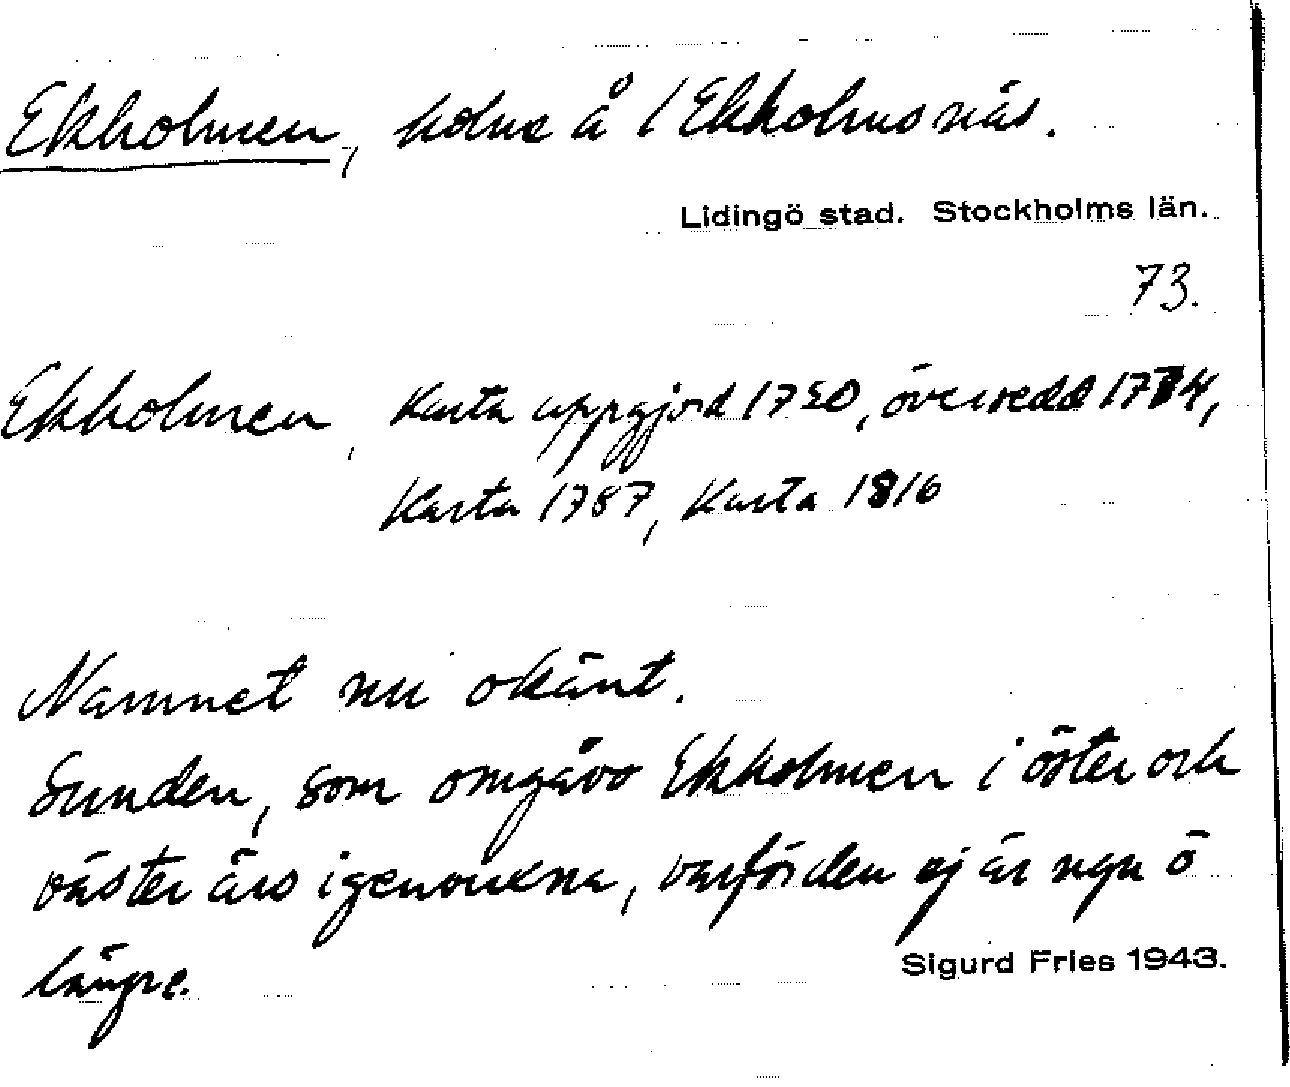 Ekholmen, holme å / Ekholmsnäs.
Lidingö stad. Stockholms län.
73.
Ekholmen, Karta uppgjord 1720, översedd 1774,
Karta 1787, Karta 1816
Namnet nu okänt.
Sunden, som omgåvo Ekholmen i öster och
väster äro igenvuxna, varför den ej är ngn ö
längre.
Sigurd Fries 1943.